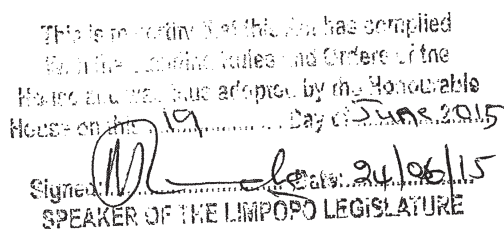 This is to certify that this Act has complied
With the Standing Rules and Orders of the
House and was thus adopted by the Honourable
House on this 19 Day of June 2015
Signed: Date: 24/06/15
SPEAKER OF THE LIMPOPO LEGISLATURE